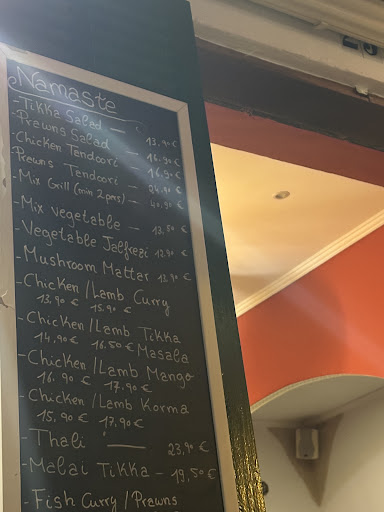 Namaste
- Tikka Salad — 13,90 €
- Prawns Salad 16,90 €
- Chicken Tandoori - 16,90 €
- Prawns Tendoori - 24,90 €
- Mix Grill (min 2 prs) - 40,90 €
- Mix vegetable — 13,50 €
- Vegetable Jalfrezi 12,90 €
- Mushroom Mattar 13,90 €
- Chicken /Lamb Curry
13,90 € 15,90 €
- Chicken /Lamb Tikka
14,90 € 16,50 € Masala
- Chicken /Lamb Mango
16,90 € 17,90 €
- Chicken /Lamb Korma
15,90 € 17,90 €
- Thali — 23,90 €
- Malai Tikka — 19,50 €
- Fish Curry / Prawns